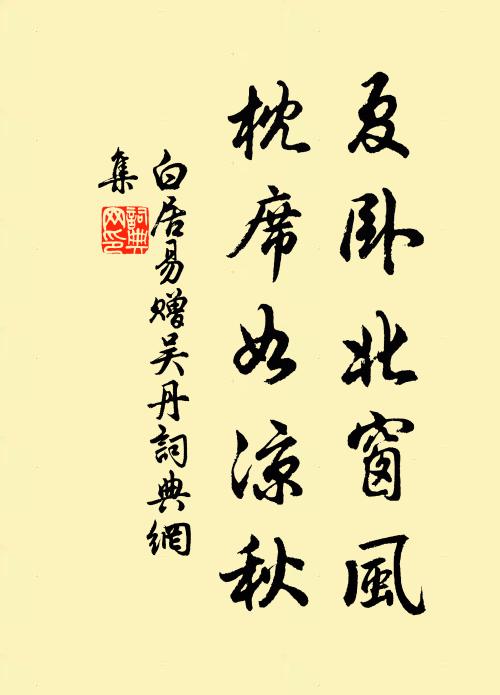 夏卧北窗風
枕席如凉秋
白居易贈吴丹詞典網
集
詞典
网印